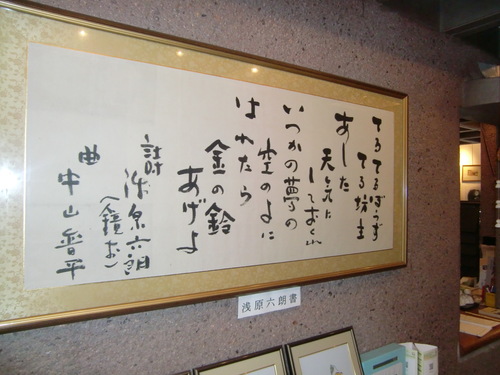 てるてるぼうず
てる坊主
あした
天気に
しておくれ
いつかの夢の
空のよに
はれたら
金の鈴
あげよ
詩 浅原六朗
(鏡村)
曲 中山晋平
浅原六朗書